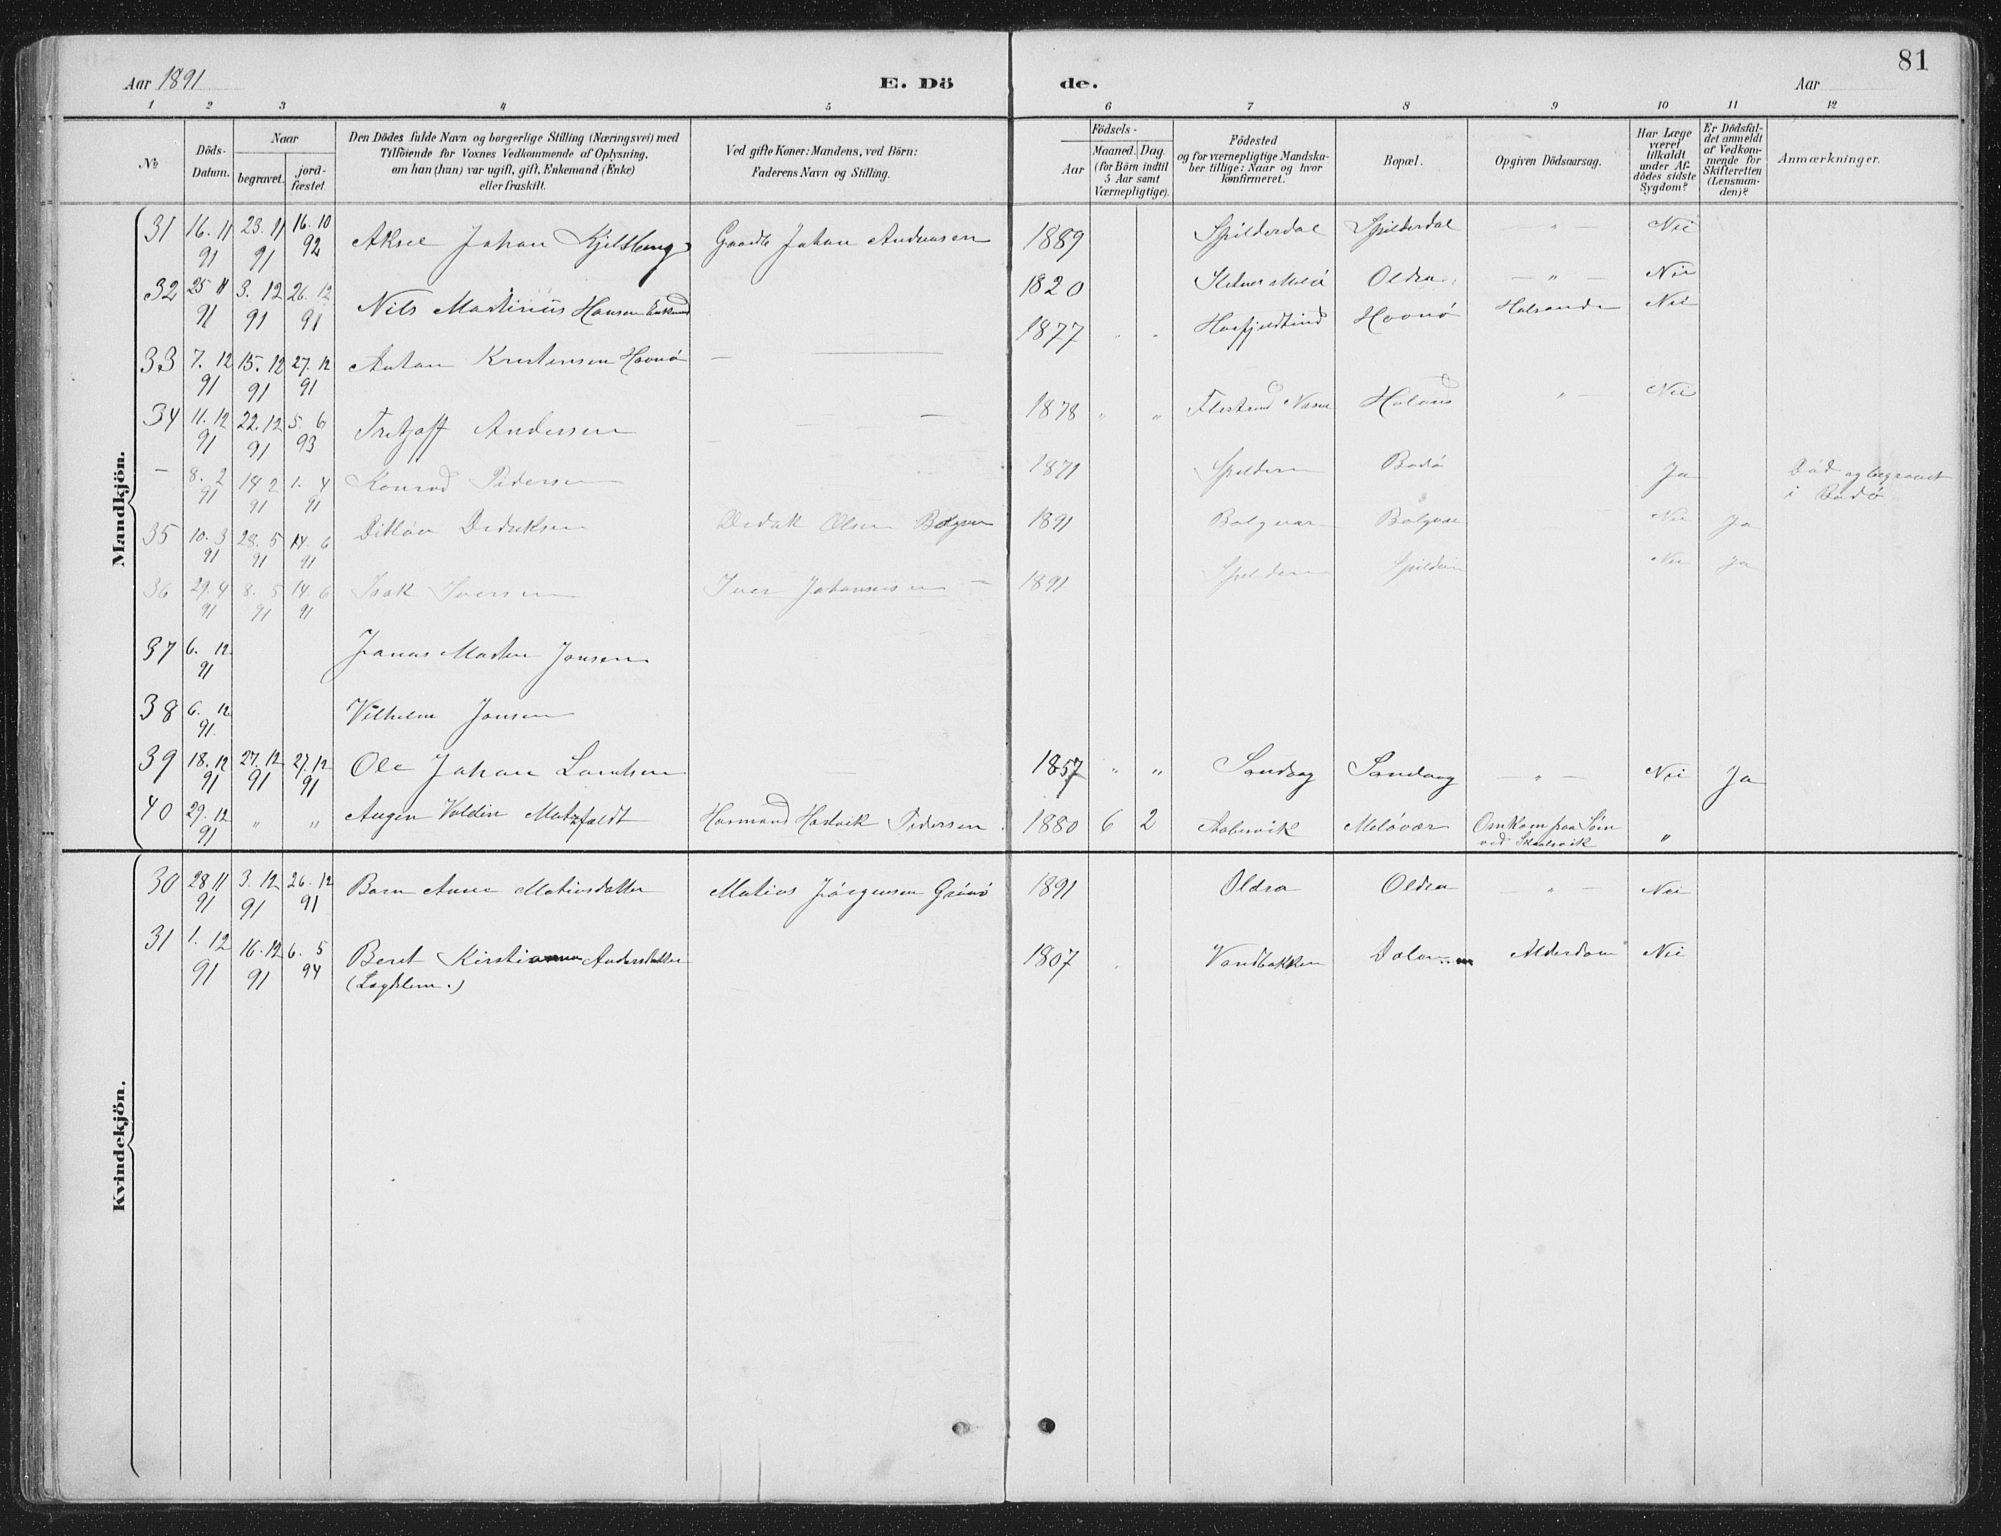 81
Aar 1891 E. Dö de. Aar
1 2 3 4 5 6 7 8 9 10 11 12
No Döds-Datum. Naar begravet. jord-fæstet. Den Dödes fulde Navn og borgerlige Stilling (Næringsvei) med Tilföiende for Voxnes Vedkommende af Oplysning, om han (hun) var ugift, gift, Enkemand (Enke) eller fraskilt. Ved gifte Koner: Mandens, ved Börn: Faderens Navn og Stilling. Födsels- Aar Maaned. Dag. (for Börn indtil 5 Aar samt Værnepligtige). Födested og for værnepligtige Mandska-ber tillige: Naar og hvor konfirmeret. Bopæl. Opgiven Dödsaarsag. Har Læge været tilkaldt under Af-dödes sidste Sygdom? Er Dödsfal-det anmeldt af Vedkom-mende for Skifteretten (Lensman-den)? Anmærkninger.
Mandkjön.
31 16. 11 91 23. 11 91 16. 10 92 Aksel Johan Kjelsberg Gaardb Johan Andersen 1889 Spilderdal Spilderdal — " — Nei
32 25 11 91 3. 12 91 26. 12 91 Nils Martinus Hansen Enkemd 1820 Oldra — " — Nei
33 7. 12 91 15. 12 91 27. 12 91 Anton Kristensen Havnø — 1877 Havnø Nei
34 11. 12 91 22. 12 91 5. 6 93 Fretjoff Andersen — 1878 " " " — Nei
— 8. 2 91 14 2 91 1. 4 91 Konrad Pedersen 1871 Spilderen Bodø Ja Død og begravet i Bodø
35 10. 3 91 28. 5 91 14. 6 91 Ditløv Dediksen Dedak Olsen Bolgvær 1891 Bolgvær Bolgvær Nei Ja
36 29. 4 91 8. 5 91 14. 6 91 Isak Iversen Iver Johannesen — 1891 Spilderen Spilderen Nei Ja
37 6. 12 91 Jonas Martin Jonsen
38 6. 12 91. Vilhelm Jonsen
39 18. 12 91 27. 12 91 27. 12 91 Ole Johan Lorntsen — 1857 " " Sandvag Sandvag — " — Nei Ja
40 29. 12 91 " " Augen Valdin Hartvik Pedersen 1880 6 2 Meløvær Omkom paa Søen ved "
Kvindekjön.
30 28 11 91 3. 12 91 26. 12 91 Barn Anne Matiasdatter Matias Jørgensen Grønø 1891 Oldra Oldra — " — Nei
31 1. 12 91 16. 12 91 6. 5 94 Beret Andersdatter 1807 Vandbakken Alderdom Nei
(Lægdslem.)